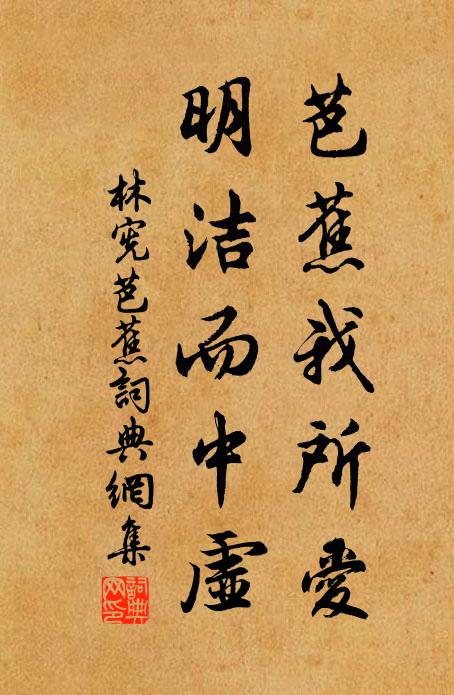 芭蕉我所愛
明洁而中虛
林宪芭蕉詞典網集
詞典
网印